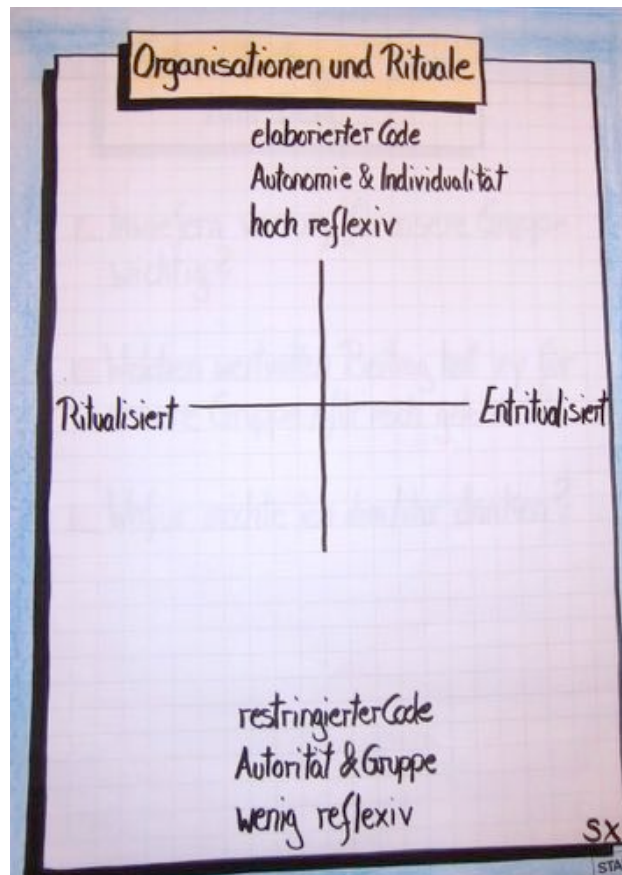 Organisationen und Rituale
elaborierter Code
Autonomie & Individualität
hoch reflexiv
Ritualisiert
Entritualisiert
restringierter Code
Autorität & Gruppe
wenig reflexiv
SX
STA